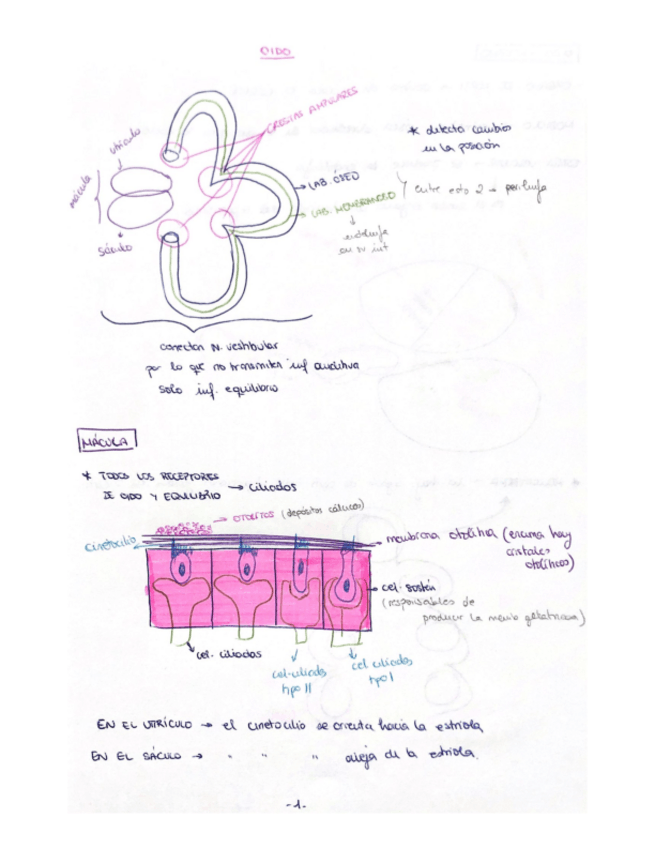 OIDO
CRESTAS AMPULARES
* detecta cambio
en la posición
utrículo
mácula
LAB. ÓSEO
LAB. MEMBRANOSO
Y entre esto 2 → perilinfa
endolinfa
en su int
Sáculo
conectan N. vestibular
por lo que no transmiten inf auditiva
solo inf. equilibrio
MÁCULA
* TODOS LOS RECEPTORES
DE OIDO Y EQUILIBRIO → ciliados
OTOLITOS (depósitos cálcicos)
Cinetocilio
membrana otolítica (encima hay
cristales
otolíticos)
cel. sostén
(responsables de
producir la memb gelatinosa)
cel. ciliadas
cel. ciliadas
tipo II
cel ciliadas
tipo I
EN EL UTRÍCULO → el cinetocilio se orienta hacia la estriola
EN EL SÁCULO → " " " aleja de la estriola.
-1-